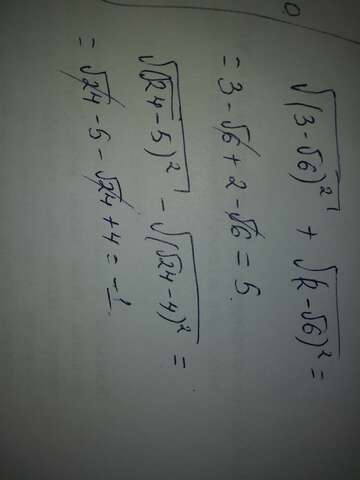 √(3-√6)² + √(2-√6)² =
= 3 - √6 + 2 - √6 = 5
√(√24-5)² - √(√24-4)² =
= √24 - 5 - √24 + 4 = -1